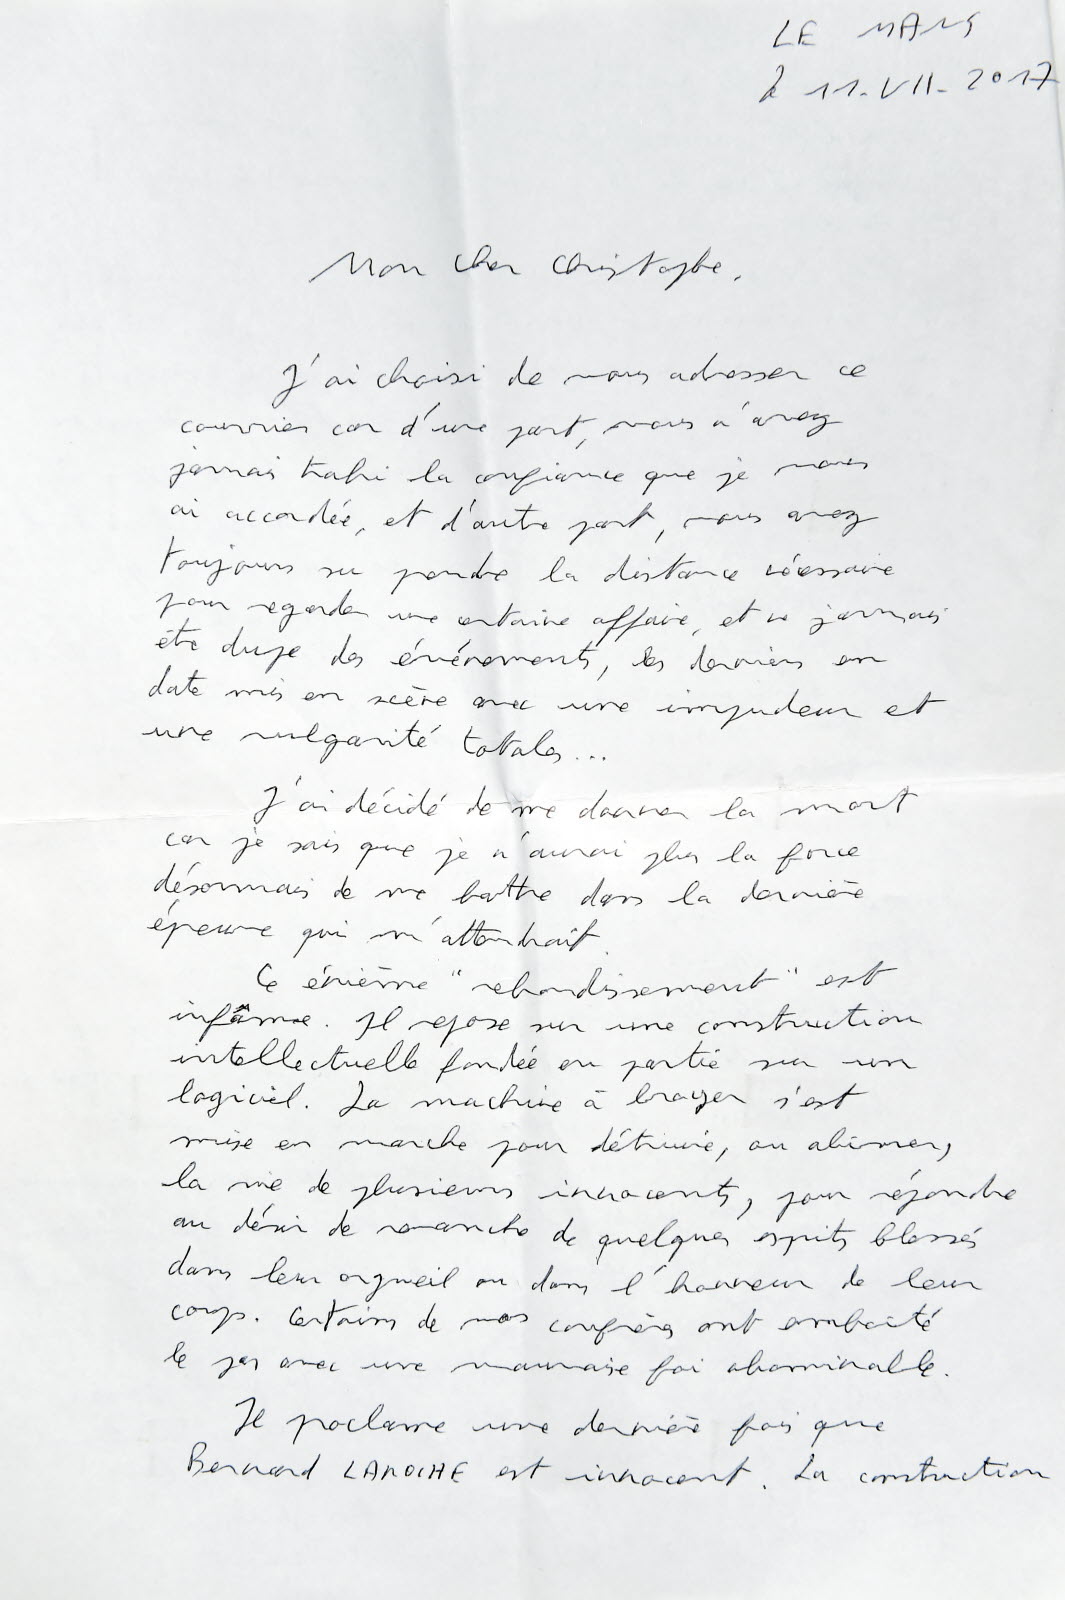 LE MANS
le 11-VII-2017
Mon cher Christophe,
J'ai choisi de vous adresser ce
courrier car d'une part, vous n'avez
jamais trahi la confiance que je vous
ai accordée, et d'autre part, vous avez
toujours su prendre la distance nécessaire
pour regarder une certaine affaire, et ne jamais
être dupe des événements, les derniers en
date mis en scène avec une impudeur et
une vulgarité totales...
J'ai décidé de me donner la mort
car je sais que je n'aurai plus la force
désormais de me battre dans la dernière
épreuve qui m'attendrait.
Ce énième "rebondissement" est
infâme. Il repose sur une construction
intellectuelle fondée en partie sur un
logiciel. La machine à broyer s'est
mise en marche pour détruire, ou abimer,
la vie de plusieurs innocents, pour répondre
au désir de revanche de quelques esprits blessés
dans leur orgueil ou dans l'honneur de leur
corps. Certains de vos confrères ont emboité
le pas avec une mauvaise foi abominable.
Je proclame une dernière fois que
Bernard LAROCHE est innocent. La construction